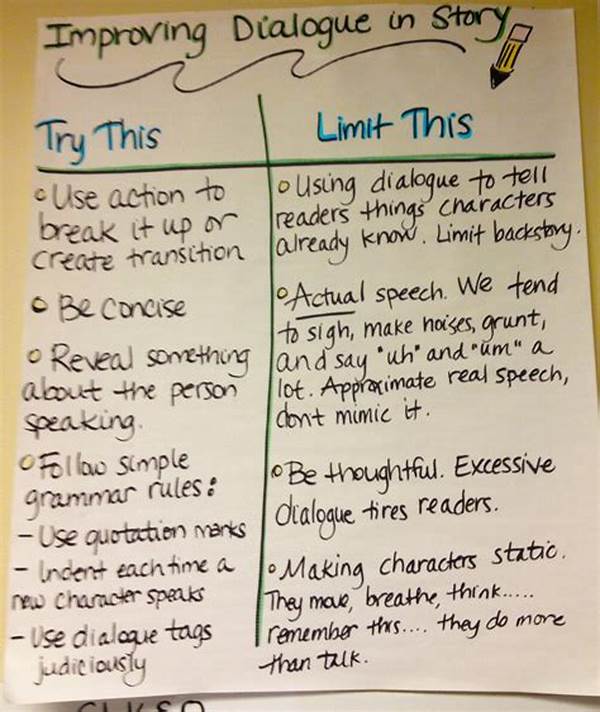 Improving Dialogue in Story
Try This
• Use action to
break it up or
create transition
• Be concise
• Reveal something
about the person
speaking.
• Follow simple
grammar rules:
- Use quotation marks
- Indent each time a
new character speaks
- Use dialogue tags
judiciously
Limit This
• Using dialogue to tell
readers things characters
already know. Limit backstory.
• Actual speech. We tend
to sigh, make noises, grunt,
and say "uh" and "um" a
lot. Approximate real speech,
don't mimic it.
• Be thoughtful. Excessive
dialogue tires readers.
• Making characters static.
They move, breathe, think.....
remember this.... they do more
than talk.